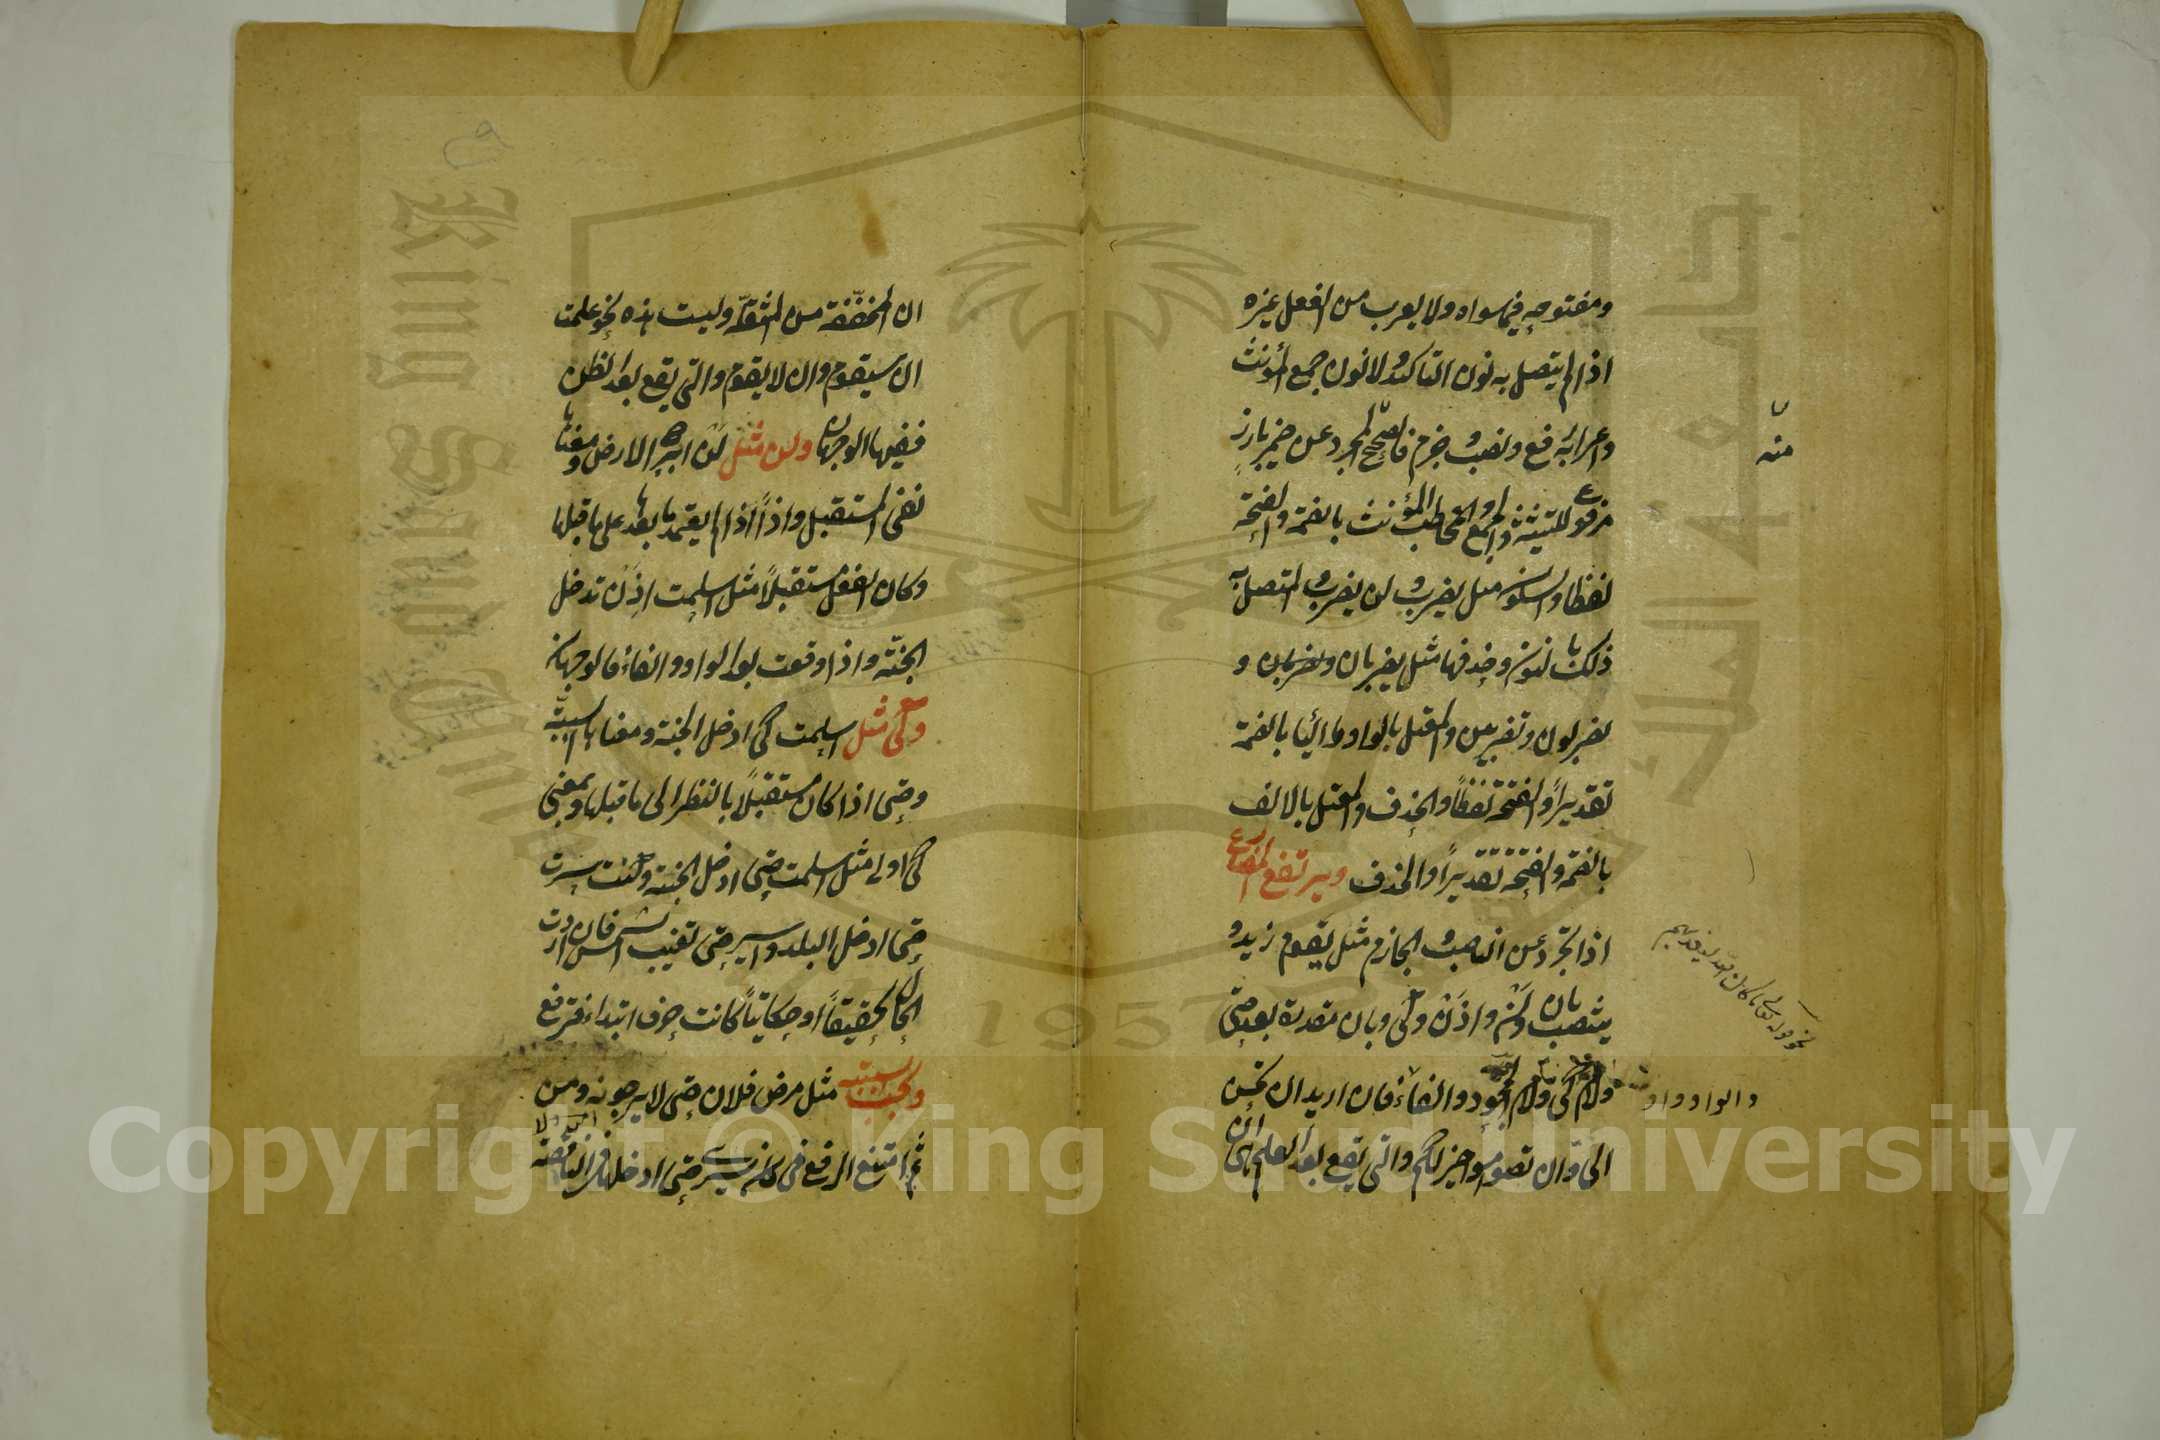 ومفتوحه فيما سواه ولا يعرب من الفعل غيره
اذا لم يتصل به نون التاكيد ولا نون جمع المؤنث
واعرابه رفع ونصب وجزم فالصحيح المجرد عن ضمير بارز
مرفوع للتثنية والجمع والمخاطب المؤنث بالضمة والفتحة
لفظا والسكون مثل يضرب ولن يضرب والمتصل به
ذلك بالنون وحذفها مثل يضربان ويضربان و
يضربون وتضربين والمعتل بالواو والياء بالضمة
تقديرًا والفتحة لفظًا والحذف والمعتل بالالف
بالضمة والفتحة تقديرًا والحذف ويرتفع المضارع
اذا تجرد عن الناصب والجازم مثل يقوم زيد و
ينتصب بان ولن واذن وكى وبان مقدرة بعد حتى
ولام كى ولام الجحود والفاء فان اريد ان تحسن
الىّ وان تصوموا خير لكم والتى يقع بعد العلم هى ان
منه
نحو قوله تعالى ما كان الله ليعذبهم
والواو واو
ان المخففة من المثقلة وليست هذه نحو علمت
ان سيقوم وان لا يقوم والتى يقع بعد الظن
ففيها الوجهان ولن مثل لن ابرح الارض ومعناها
نفى المستقبل واذًا اذا لم يعتمد ما بعدها على ما قبلها
وكان الفعل مستقبلًا مثل اسلمت اذن تدخل
الجنة واذا وقعت بعد الواو والفاء فالوجهان
وكى مثل اسلمت كى ادخل الجنة ومعناها السببية
وحتى اذا كان مستقبلًا بالنظر الى ما قبلها وبمعنى
كى او لى مثل اسلمت حتى ادخل الجنة وكنت سرت
حتى ادخل البلد واسير حتى تغيب الشمس فان اردت
الحال تحقيقًا او حكايتًا كانت حرف ابتداء فترفع
وتجب السببية مثل مرض فلان حتى لا يرجونه ومن
ثم امتنع الرفع فى كان سيرى حتى ادخلها فى الناقصة
1957
Copyright © King Saud University